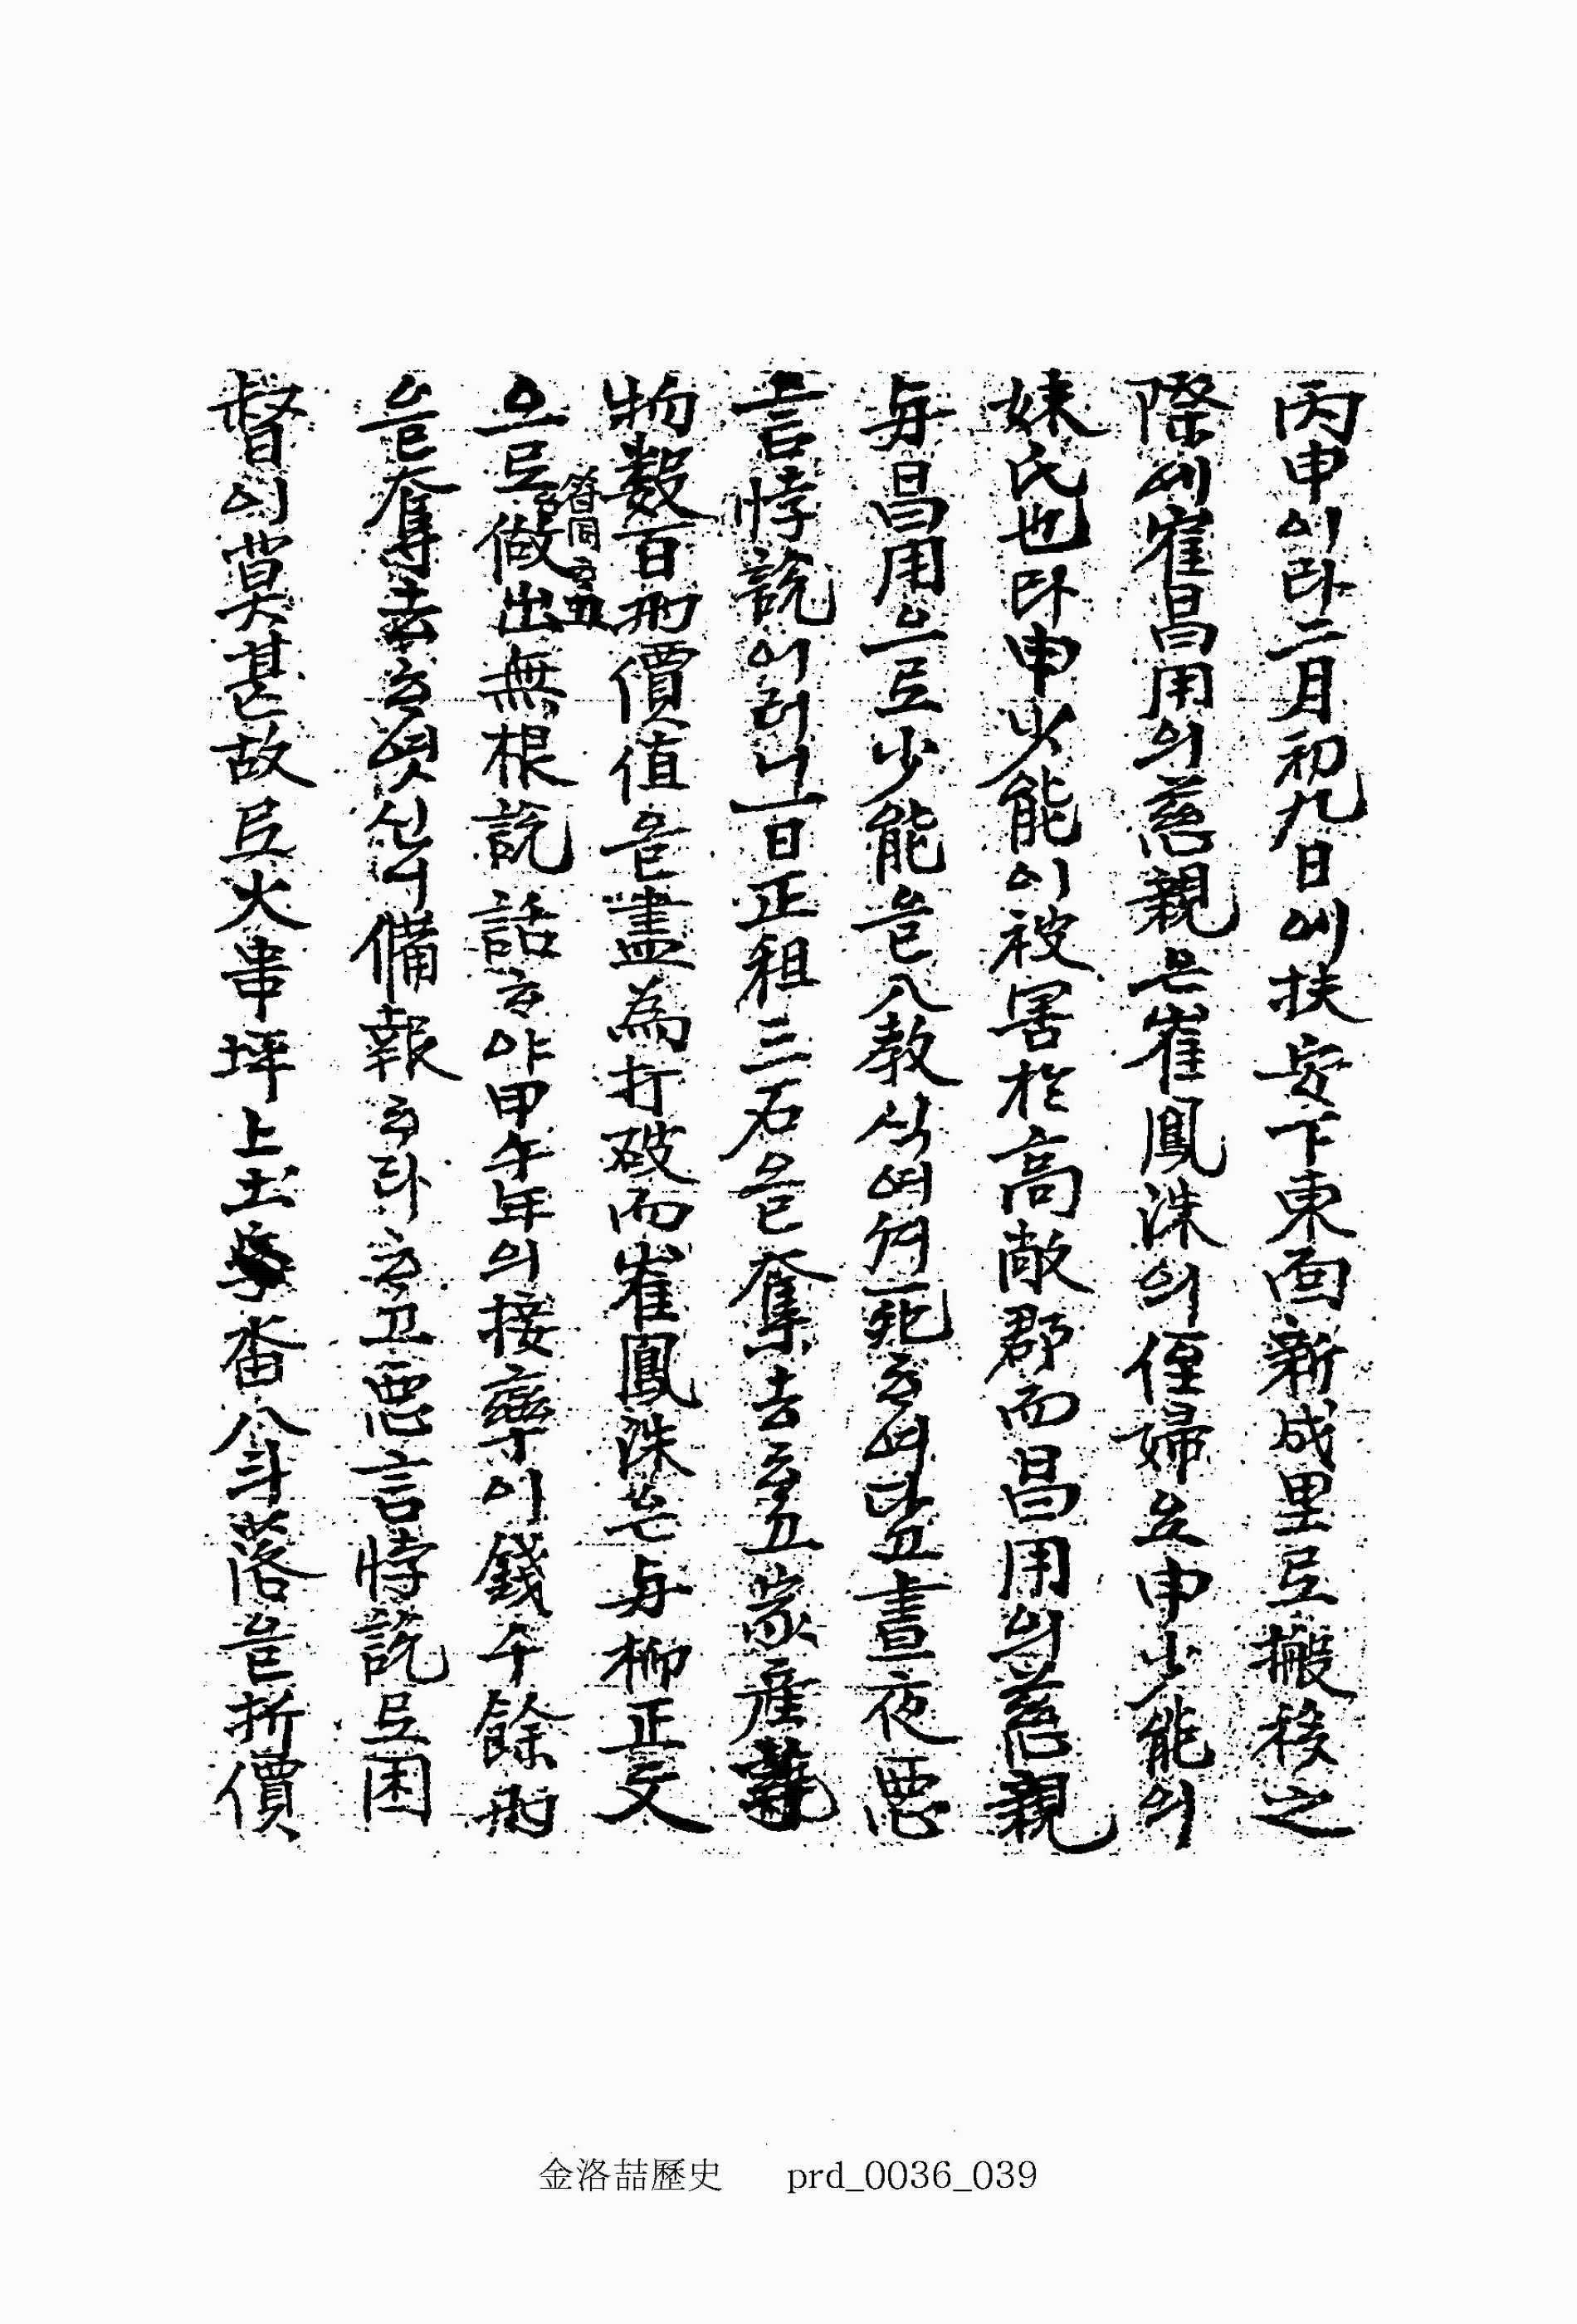 丙申이라二月初九日에扶安下東面新成里로搬移之
際에崔昌用의慈親은崔鳳洙의侄婦요申少能의
妹氏也라申少能이被害於高敞郡而昌用의慈親
与昌用으로少能을入教식여行死하여다고晝夜惡
言悖說이러니一日正租三石을奪去하고家産
物數百刄價値을盡爲打破而崔鳳洙난与柳正文
으로做出無根說話하야甲午年의接率이錢千餘刄
을奪去하엿신니備報하라하고惡言悖說로困
督이莫甚故로火串坪上土畓八斗落을折價
金洛喆歷史 prd_0036_039